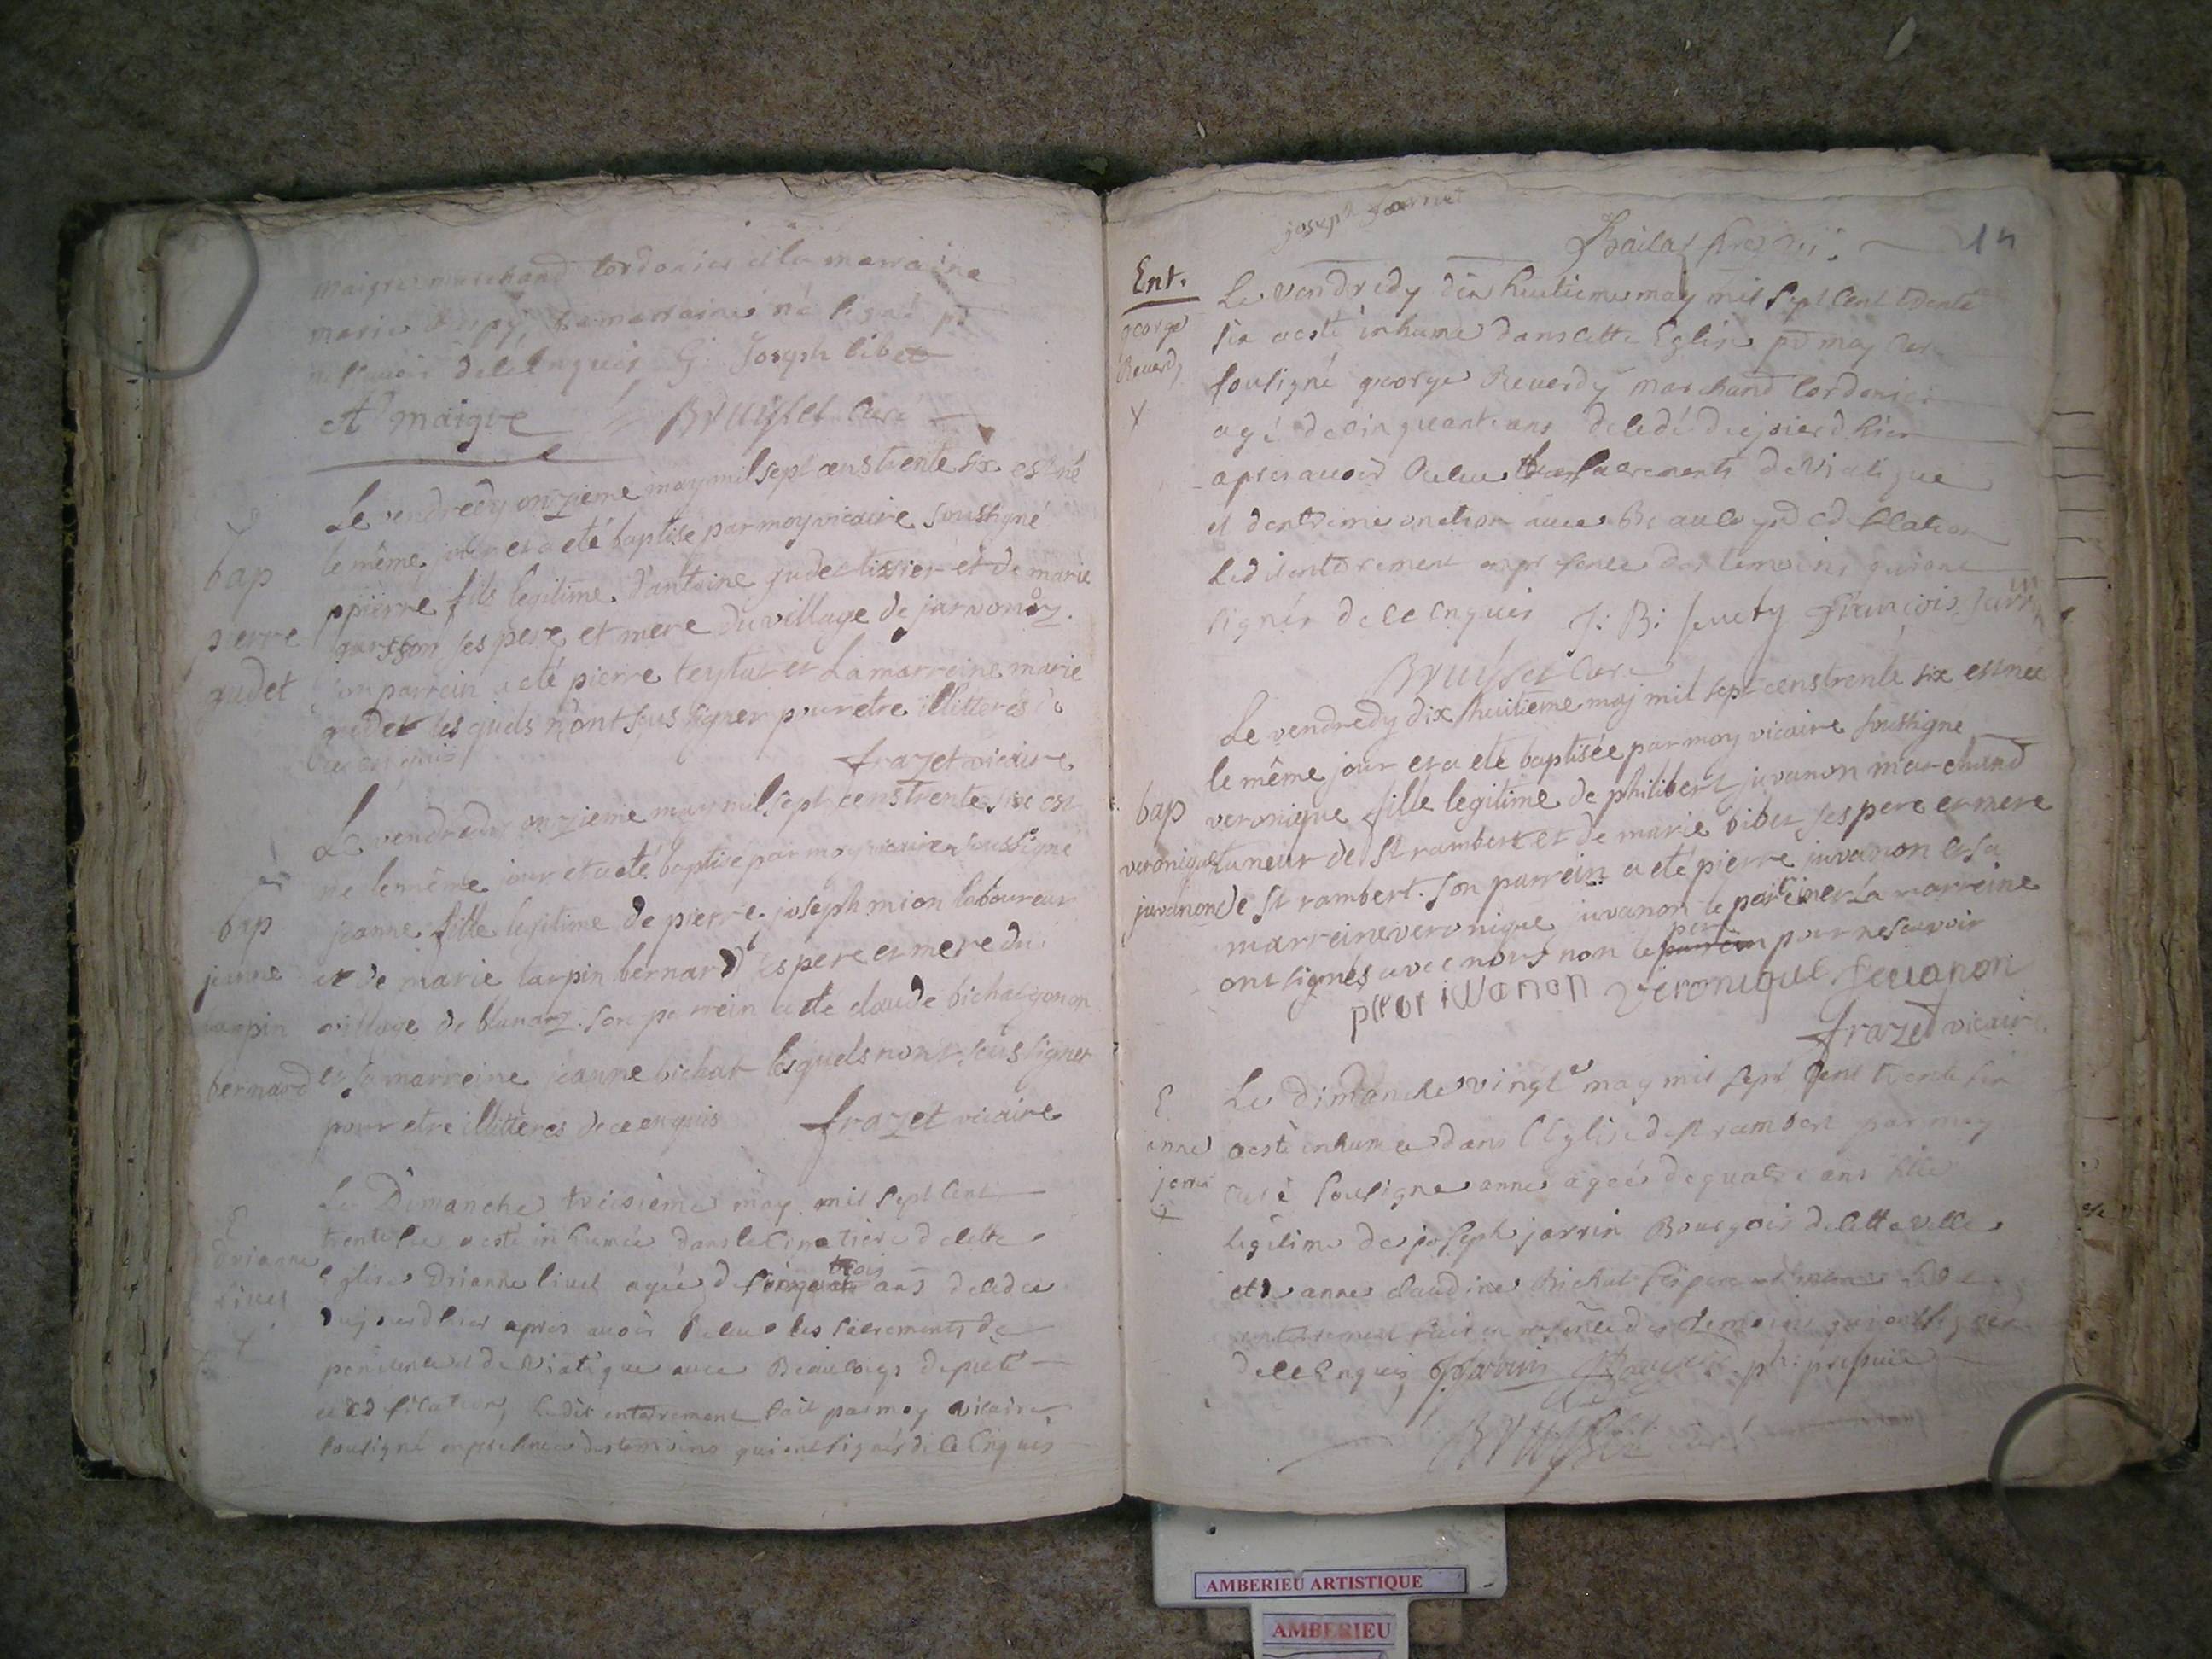 maigre marchand cordonier et la marraine
marie la marraine n'a signé pr
de ce enquis G. Joseph libet
At maigre Bruysset curé
Le vendredy onzieme may mil sept cens trente six est né
le même jour et a eté baptisé par moy vicaire soussigné
bap
ppierre fils legitime d'antoine gudet tixier et de marie
pierre
garsson ses pere et mere du village de jarvonoz.
gudet
son parrein a eté pierre teytut et La marreine marie
gudet lesquels n'ont sus signer pour etre illitterés de
ce enquis
frazet vicaire
Le vendredy onzieme may mil sept cens trente six est
né le même jour et a eté baptisé par moy vicaire soussigné
bap
jeanne fille legitime de pierre joseph mion laboureur
jeanne
et de marie tarpin bernard ses pere et mere du
tarpin
village de blanaz. son parrein a eté claude bichat gonon
bernard
et sa marreine jeanne bichat lesquels n'ont seus signer
pour etre illitterés de ce enquis frazet vicaire
Le Dimanche treisième may mil sept cent
E
trente six a esté inhumée dans le cimetière de cette
Drianne
trois
Eglise Drianne livet agée de ans decedée
livet
aujourdhier apres avoir receu les sacrements de
penitence et de viatique avec Beaucoups de pieté
et ed'fication, Ledit enterrement fait par moy vicaire
sousigné en presence des temoins qui ont signés de ce Enquis
joseph jarnet
14
Ent.
Le vendredy dix huitieme may mil sept cent trente
george
six a esté inhumé dans cette Eglise par moy curé
Reverdy
sousigné george Reverdy marchand cordonier
agé de cinquante ans decedé du jourd'hier
apres avoir Receu les sacrements de viatique
et d'extreme onction avec Beaucoup d'edification
Ledit enterrement en presence des temoins qui ont
signés de ce enquis J: B: Sevety François Jarrin
Bruysset Curé
Le vendredy dix huitieme maj mil sept cens trente six est née
le même jour et a eté baptisée par moy vicaire soussigné
bap
veronique fille legitime de philibert juvanon marchand
veronique
taneur de St rambert et de marie bibet ses pere et mere
juvanon
de St rambert. son parrein a eté pierre juvanon et sa
marreine veronique juvanon le parrein et La marreine
pere
ont signés avec nous non le parrein pour ne scavoir
pieor iuvanon veronique Jeuanon
frazet vicaire
Le Dimanche vingt may mil sept cent trente six
E
a esté inhumée dans l'Eglise de st rambert par moy
anne
curé sousigné anne agée de quatre ans fille
legitime de joseph jarrin Bourgois de cette ville
et de anne claudine Bichat ses pere et mere Led
enterrement fait en presence des temoins qui ont signés
de ce Enquis Jarrin
Bruysset curé
AMBERIEU ARTISTIQUE
AMBERIEU